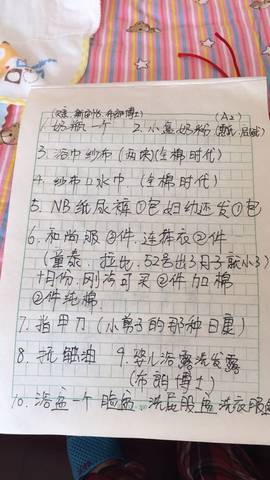 (A2)
1. 奶瓶一个 2. 小盒奶粉
3. 浴巾纱布 (两块)(全棉时代)
4. 纱布口水巾. (全棉时代)
5. NB纸尿裤①包 妇幼还发①包
6. 和尚服③件. 连体衣②件
(童泰. 拉比. 52号出了月子就小了)
十月份. 刚好可买②件加棉
②件纯棉.
7. 指甲刀 (小剪子的那种日康)
8. 抚触油 9. 婴儿浴露洗发露
(布朗博士)
10. 浴盆一个 脸盆 洗屁股盆 洗衣服盆